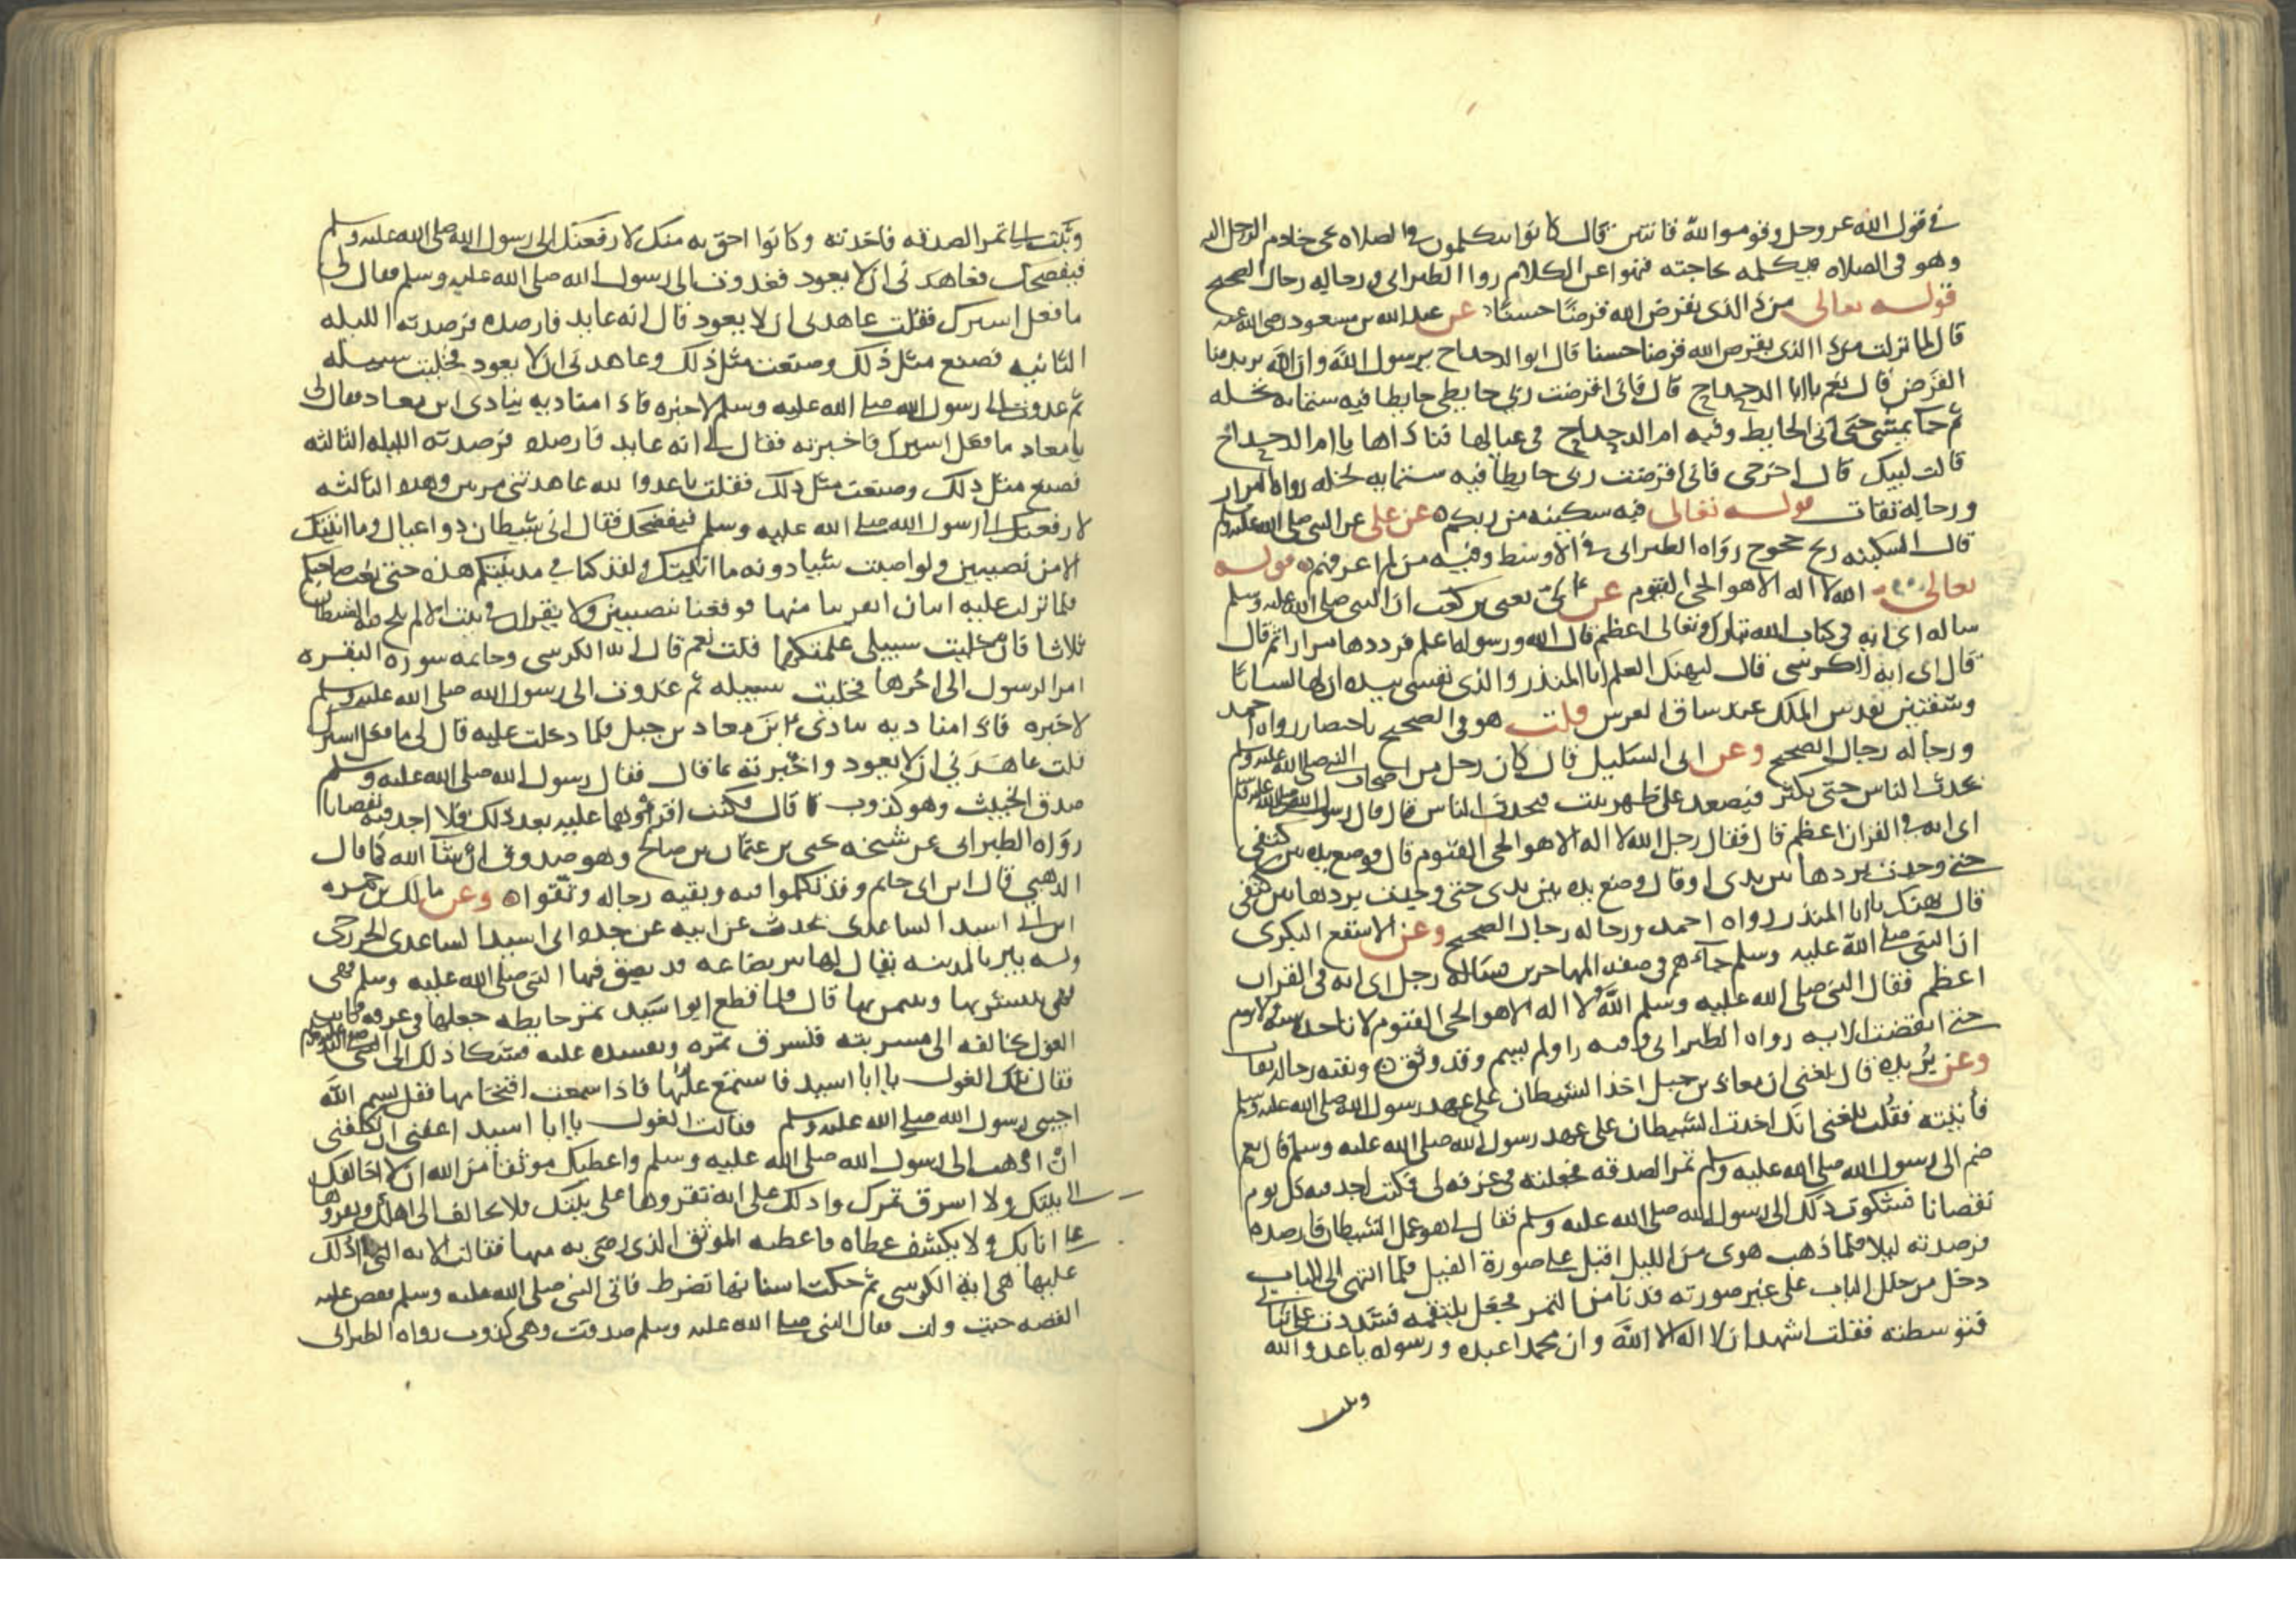 في قول الله عز وجل وقوموا لله قانتين قال كانوا يتكلمون في الصلاه يجي خادم الرجل اليه
وهو في الصلاه فيكلمه بحاجته فنهوا عن الكلام رواه الطبراني ورجاله رجال الصحيح
قوله تعالى من ذا الذي يقرض الله قرضا حسنا عن عبد الله بن مسعود رضي الله عنه
قال لما نزلت من ذا الذي يقرض الله قرضا حسنا قال ابو الدحداح يرسول الله وان الله يريد منا
القرض قال نعم يا ابا الدحداح قال فاني اقرضت ربي حايطي حايطا فيه ستمايه نخله
ثم جا يمشي حتى اتى الحايط وفيه ام الدحداح في عيالها فناداها يا ام الدحداح
قالت لبيك قال اخرجي فاني اقرضت ربي حايطا فيه ستمايه نخله رواه البزار
ورجاله ثقات قوله تعالى فيه سكينه من ربكم عن علي عن النبي صلى الله عليه وسلم
قال السكينه ريح خجوج رواه الطبراني في الاوسط وفيه من لم اعرفهم قوله
تعالى الله لا اله الا هو الحي القيوم عن ابي يعني بن كعب ان النبي صلى الله عليه وسلم
ساله اي ايه في كتاب الله تبارك وتعالى اعظم قال الله ورسوله اعلم فرددها مرارا ثم قال
قال اي ايه الكرسي قال ليهنك العلم ابا المنذر والذي نفسي بيده ان لها لسانا
وشفتين تقدس الملك عند ساق العرش قلت هو في الصحيح باختصار رواه احمد
ورجاله رجال الصحيح وعن ابي السليل قال كان رجل من اصحاب النبي صلى الله عليه وسلم
يحدث الناس حتى يكثر فيصعد على ظهر بيت فيحدث الناس قال قال رسول الله صلى الله عليه وسلم
اي ايه في القران اعظم قال فقال رجل الله لا اله الا هو الحي القيوم قال فوضع يده بين كتفي
حتى وجدت بردها بين يدي او قال وضع يده بين يدي حتى وجدت بردها بين كتفي
قال يهنك يا ابا المنذر رواه احمد ورجاله رجال الصحيح وعن الاسقع البكري
ان النبي صلى الله عليه وسلم جاءهم في صفة المهاجرين فساله رجل اي ايه في القران
اعظم فقال النبي صلى الله عليه وسلم الله لا اله الا هو الحي القيوم لا تاخذه سنه ولا نوم
حتى انقضت الايه رواه الطبراني وفيه راو لم يسم وقد وثق وبقيه رجاله ثقات
وعن بريده قال بلغني ان معاذ بن جبل اخذ الشيطان على عهد رسول الله صلى الله عليه وسلم
فأتيته فقلت بلغني انك اخذت الشيطان على عهد رسول الله صلى الله عليه وسلم قال نعم
ضم الى رسول الله صلى الله عليه وسلم تمر الصدقه فجعلته في غرفه لي فكنت اجد فيه كل يوم
نقصانا فشكوت ذلك الى رسول الله صلى الله عليه وسلم فقال لي هو عمل الشيطان فارصده
فرصدته ليلا فلما ذهب هوى من الليل اقبل على صورة الفيل فلما انتهى الى الباب
دخل من خلل الباب على غير صورته فدنا من التمر فجعل يلتقمه فشددت علي ثيابي
فتوسطته فقلت اشهد ان لا اله الا الله وان محمدا عبده ورسوله يا عدو الله
وثبت
وثبت الى تمر الصدقه فاخذته وكانوا احق به منك لارفعنك الى رسول الله صلى الله عليه وسلم
فيفضحك فعاهدني ان لا يعود فغدوت الى رسول الله صلى الله عليه وسلم فقال لي
ما فعل اسيرك فقلت عاهدني ان لا يعود قال انه عايد فارصده فرصدته الليله
الثانيه فصنع مثل ذلك وصنعت مثل ذلك وعاهدني ان لا يعود فخليت سبيله
ثم غدوت الى رسول الله صلى الله عليه وسلم لاخبره فاذا مناديه ينادي اين معاذ فقال لي
يا معاذ ما فعل اسيرك فاخبرته فقال لي انه عايد فارصده فرصدته الليله الثالثه
فصنع مثل ذلك وصنعت مثل ذلك فقلت يا عدوا لله عاهدتني مرتين وهذه الثالثه
لارفعنك الى رسول الله صلى الله عليه وسلم فيفضحك فقال اني شيطان ذو اعيال وما اتيتك
الا من نصيبين ولو اصبت شيا دونه ما اتيتك ولقد كنا في مدينتكم هذه حتى بعث صاحبكم
فلما نزلت عليه ايتان انفرتنا منها فوقعنا بنصيبين ولا يقران في بيت الا لم يلج فيه الشيطان
ثلاثا فان خليت سبيلي علمتكهما قلت نعم قال ايه الكرسي وخاتمه سوره البقره
امن الرسول الى اخرها فخليت سبيله ثم غدوت الى رسول الله صلى الله عليه وسلم
لاخبره فاذا مناديه ينادي اين معاذ بن جبل فلما دخلت عليه قال لي ما فعل اسيرك
قلت عاهدني ان لا يعود واخبرته بما قال فقال رسول الله صلى الله عليه وسلم
صدق الخبيث وهو كذوب قال فكنت اقرؤهما عليه بعد ذلك فلا اجد فيه نقصانا
رواه الطبراني عن شيخه يحيى بن عثمان بن صالح وهو صدوق ان شآ الله كما قال
الذهبي قال ابن ابي حاتم وقد تكلموا فيه وبقيه رجاله وثقوا وعن مالك بن حمزه
ابن ابي اسيد الساعدي يحدث عن ابيه عن جده ابي اسيد الساعدي الخزرجي
وله بير بالمدينه يقال لها بير بضاعه قد بصق فيها النبي صلى الله عليه وسلم فهي
يستشربها ويتيمن بها قال فلما قطع ابو اسيد تمر حايطه جعلها في غرفه فكانت
الغول تخالفه الى مشربته فتسرق تمره وتفسده عليه فشكا ذلك الى النبي صلى الله عليه وسلم
فقال تلك الغول يا ابا اسيد فاستمع عليها فاذا سمعت اقتحامها فقل بسم الله
اجيبي رسول الله صلى الله عليه وسلم فقالت الغول يا ابا اسيد اعفني ان تكلفني
ان اذهب الى رسول الله صلى الله عليه وسلم واعطيك موثقا من الله ان لا اخالفك
الى بيتك ولا اسرق تمرك وادلك على ايه تقروها على بيتك فلا تخالف الى اهلك وتقروها
على انايك ولا يكشف غطاه فاعطته الموثق الذي رضي به منها فقالت الايه التي ادلك
عليها هي اية الكرسي ثم حكت استها تضرط فاتى النبي صلى الله عليه وسلم فقص عليه
القصه حيث ولت فقال النبي صلى الله عليه وسلم صدقت وهي كذوب رواه الطبراني